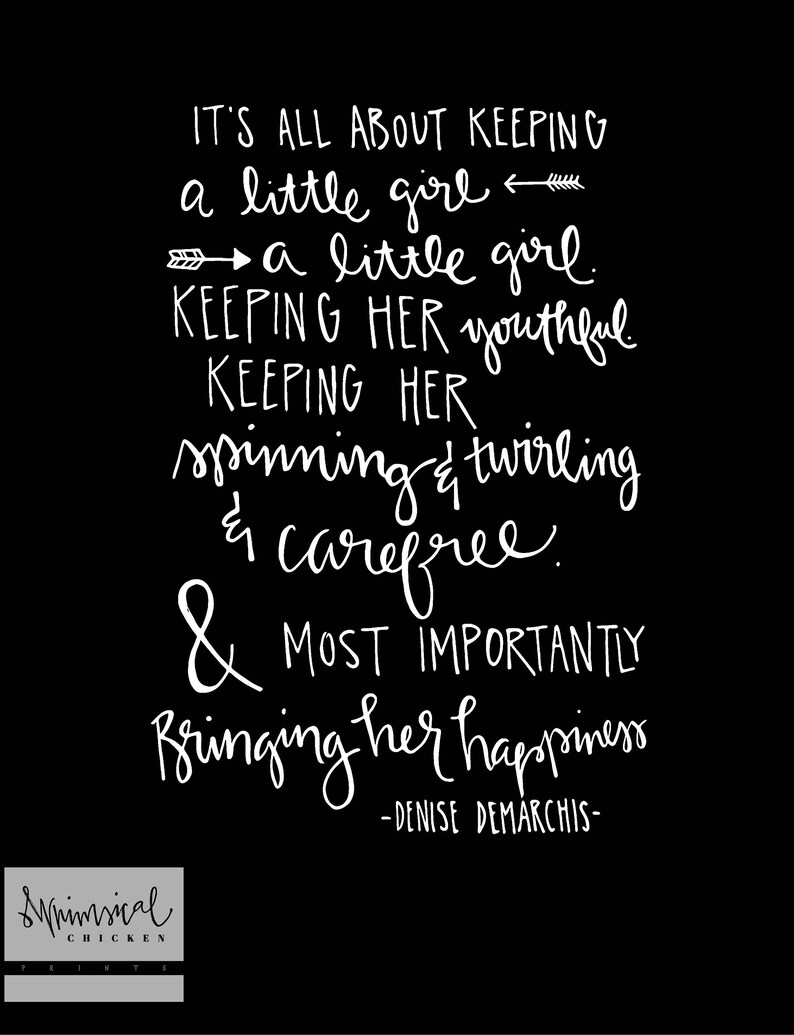 IT'S ALL ABOUT KEEPING
a little girl
a little girl.
KEEPING HER youthful.
KEEPING HER
spinning & twirling
& carefree.
& MOST IMPORTANTLY
Bringing her happiness
-DENISE DEMARCHIS-
Whimsical
CHICKEN
PRINTS